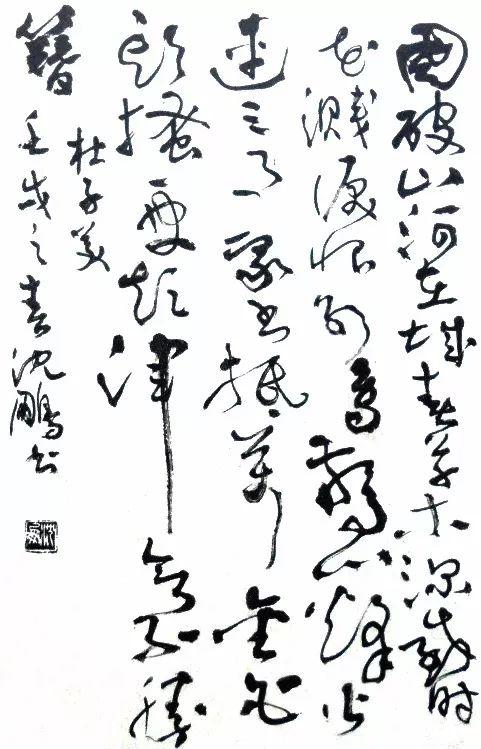 國破山河在城春草木深感时
花濺淚恨别鸟驚心烽火
連三月家书抵萬金白
頭搔更短渾欲不勝
簪
杜子美
壬戌之春沈鵬书